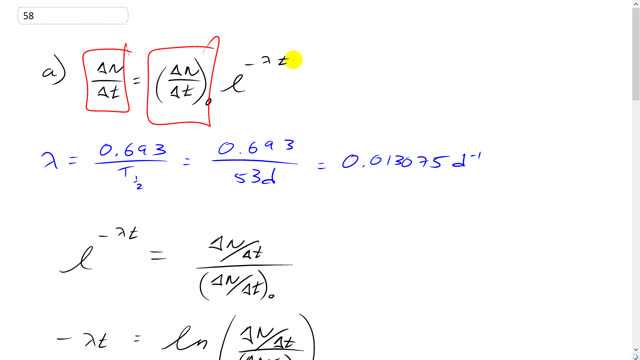 58
a) ΔN/Δt = (ΔN/Δt)₀ e^(-λt)
λ = 0.693/T_½ = 0.693/53d = 0.013075 d⁻¹
e^(-λt) = (ΔN/Δt)/(ΔN/Δt)₀
-λt = ln((ΔN/Δt)/(ΔN/Δt)